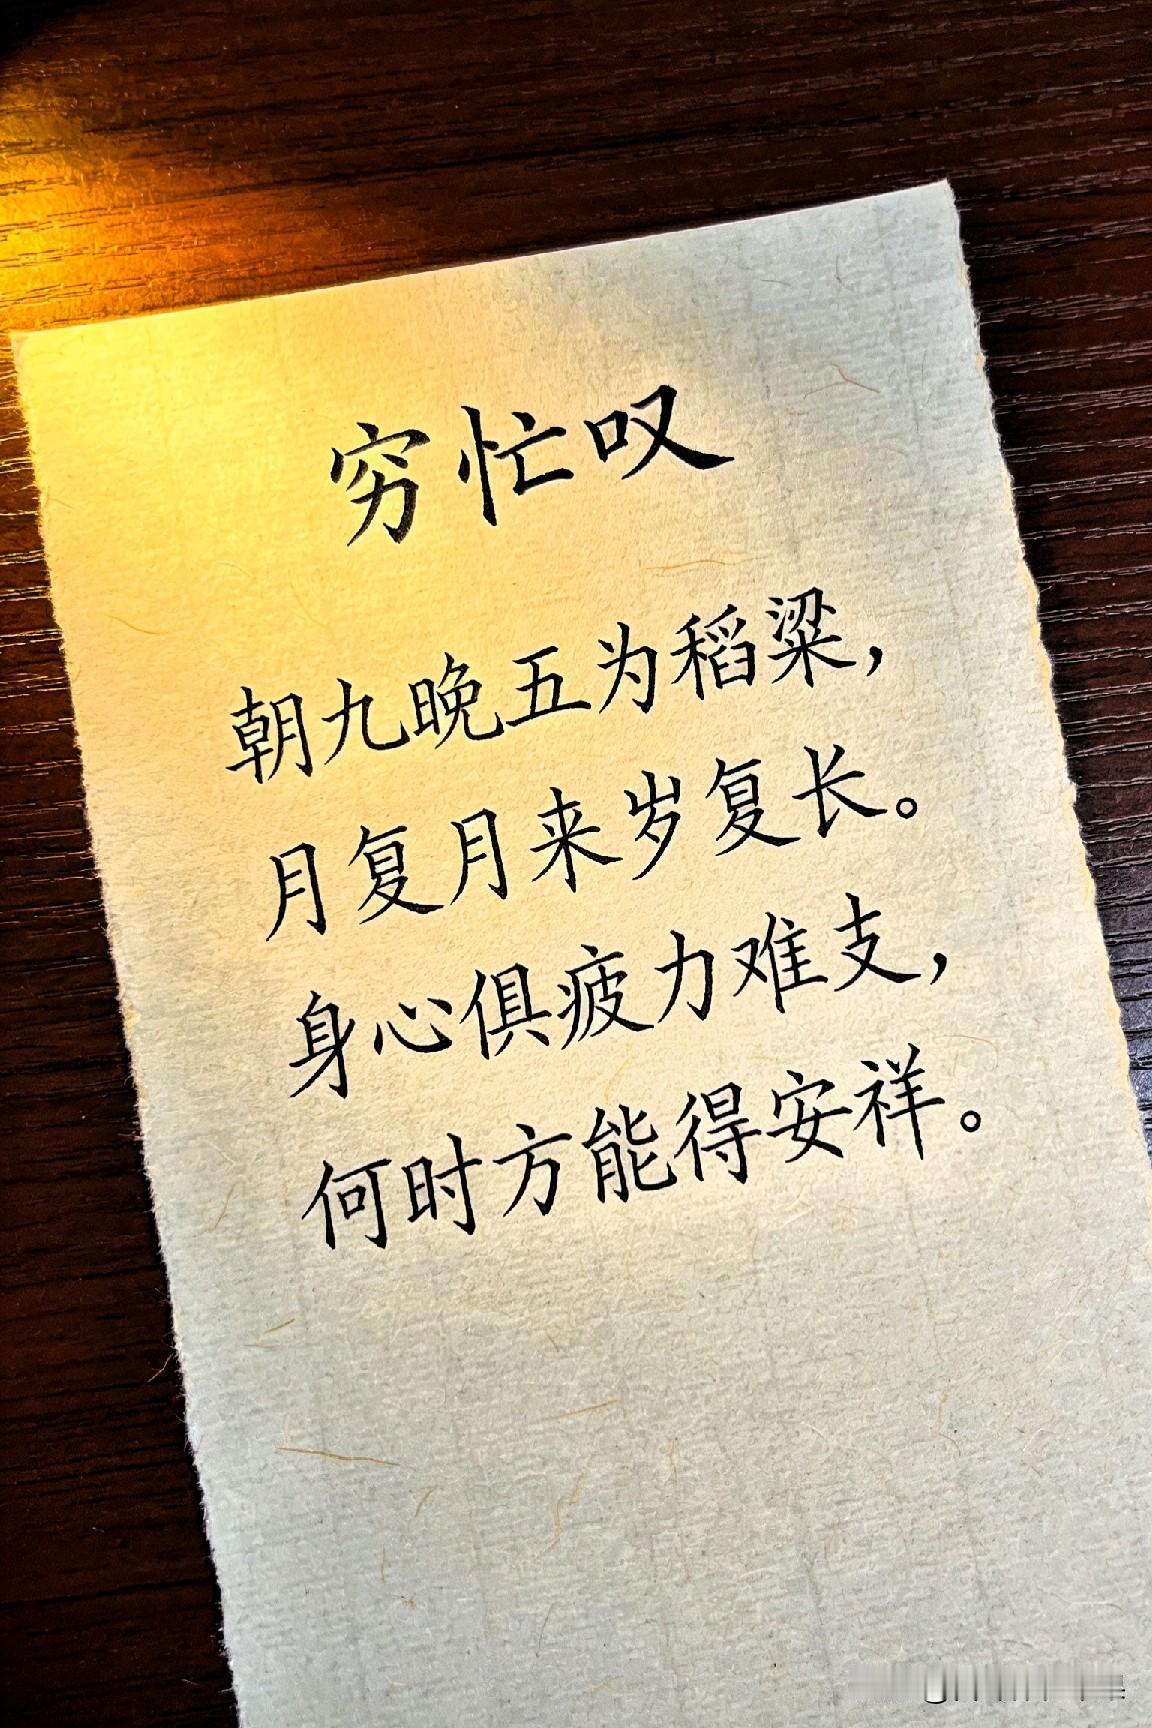 穷忙叹
朝九晚五为稻粱，
月复月来岁复长。
身心俱疲力难支，
何时方能得安祥。